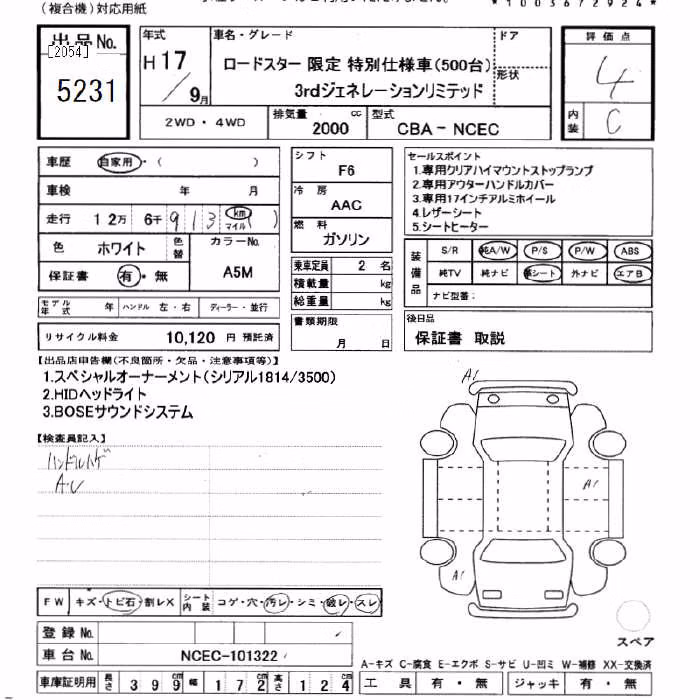 (複合機)対応用紙
*1003672924*
出品No.
[2054]
5231
年式
H17/9月
車名・グレード
ロードスター 限定 特別仕様車(500台)
3rdジェネレーションリミテッド
ドア
形状
評価点
4
内装
C
2WD・4WD
排気量
2000
cc
型式
CBA-NCEC
車歴
自家用・( )
車検
年 月
走行
12万 6千 913 km マイル )
色
ホワイト
色替
カラーNo.
A5M
保証書
有・無
モデル年式
年
ハンドル
左・右
ディーラー・並行
リサイクル料金
10,120 円 預託済
シフト
F6
冷房
AAC
燃料
ガソリン
乗車定員
2 名
積載量
kg
総重量
kg
書類期限
月 日
セールスポイント
1.専用クリアハイマウントストップランプ
2.専用アウターハンドルカバー
3.専用17インチアルミホイール
4.レザーシート
5.シートヒーター
装備品
S/R
純A/W
P/S
P/W
ABS
純TV
純ナビ
革シート
外ナビ
エアB
ナビ型番:
後日品
保証書 取説
【出品店申告欄(不良箇所・欠品・注意事項等)】
1.スペシャルオーナーメント(シリアル1814/3500)
2.HIDヘッドライト
3.BOSEサウンドシステム
【検査員記入】
ハンドルハゲ
A.U
A1
A1
A1
FW
キズ・トビ石・割レX
シート内装
コゲ・穴・汚レ・シミ・破レ・スレ
登録No.
車台No.
NCEC-101322
車庫証明用
長さ
399
cm
幅
172
cm
高さ
124
cm
スペア
A-キズ C-腐食 E-エクボ S-サビ U-凹ミ W-補修 XX-交換済
工具
有・無
ジャッキ
有・無